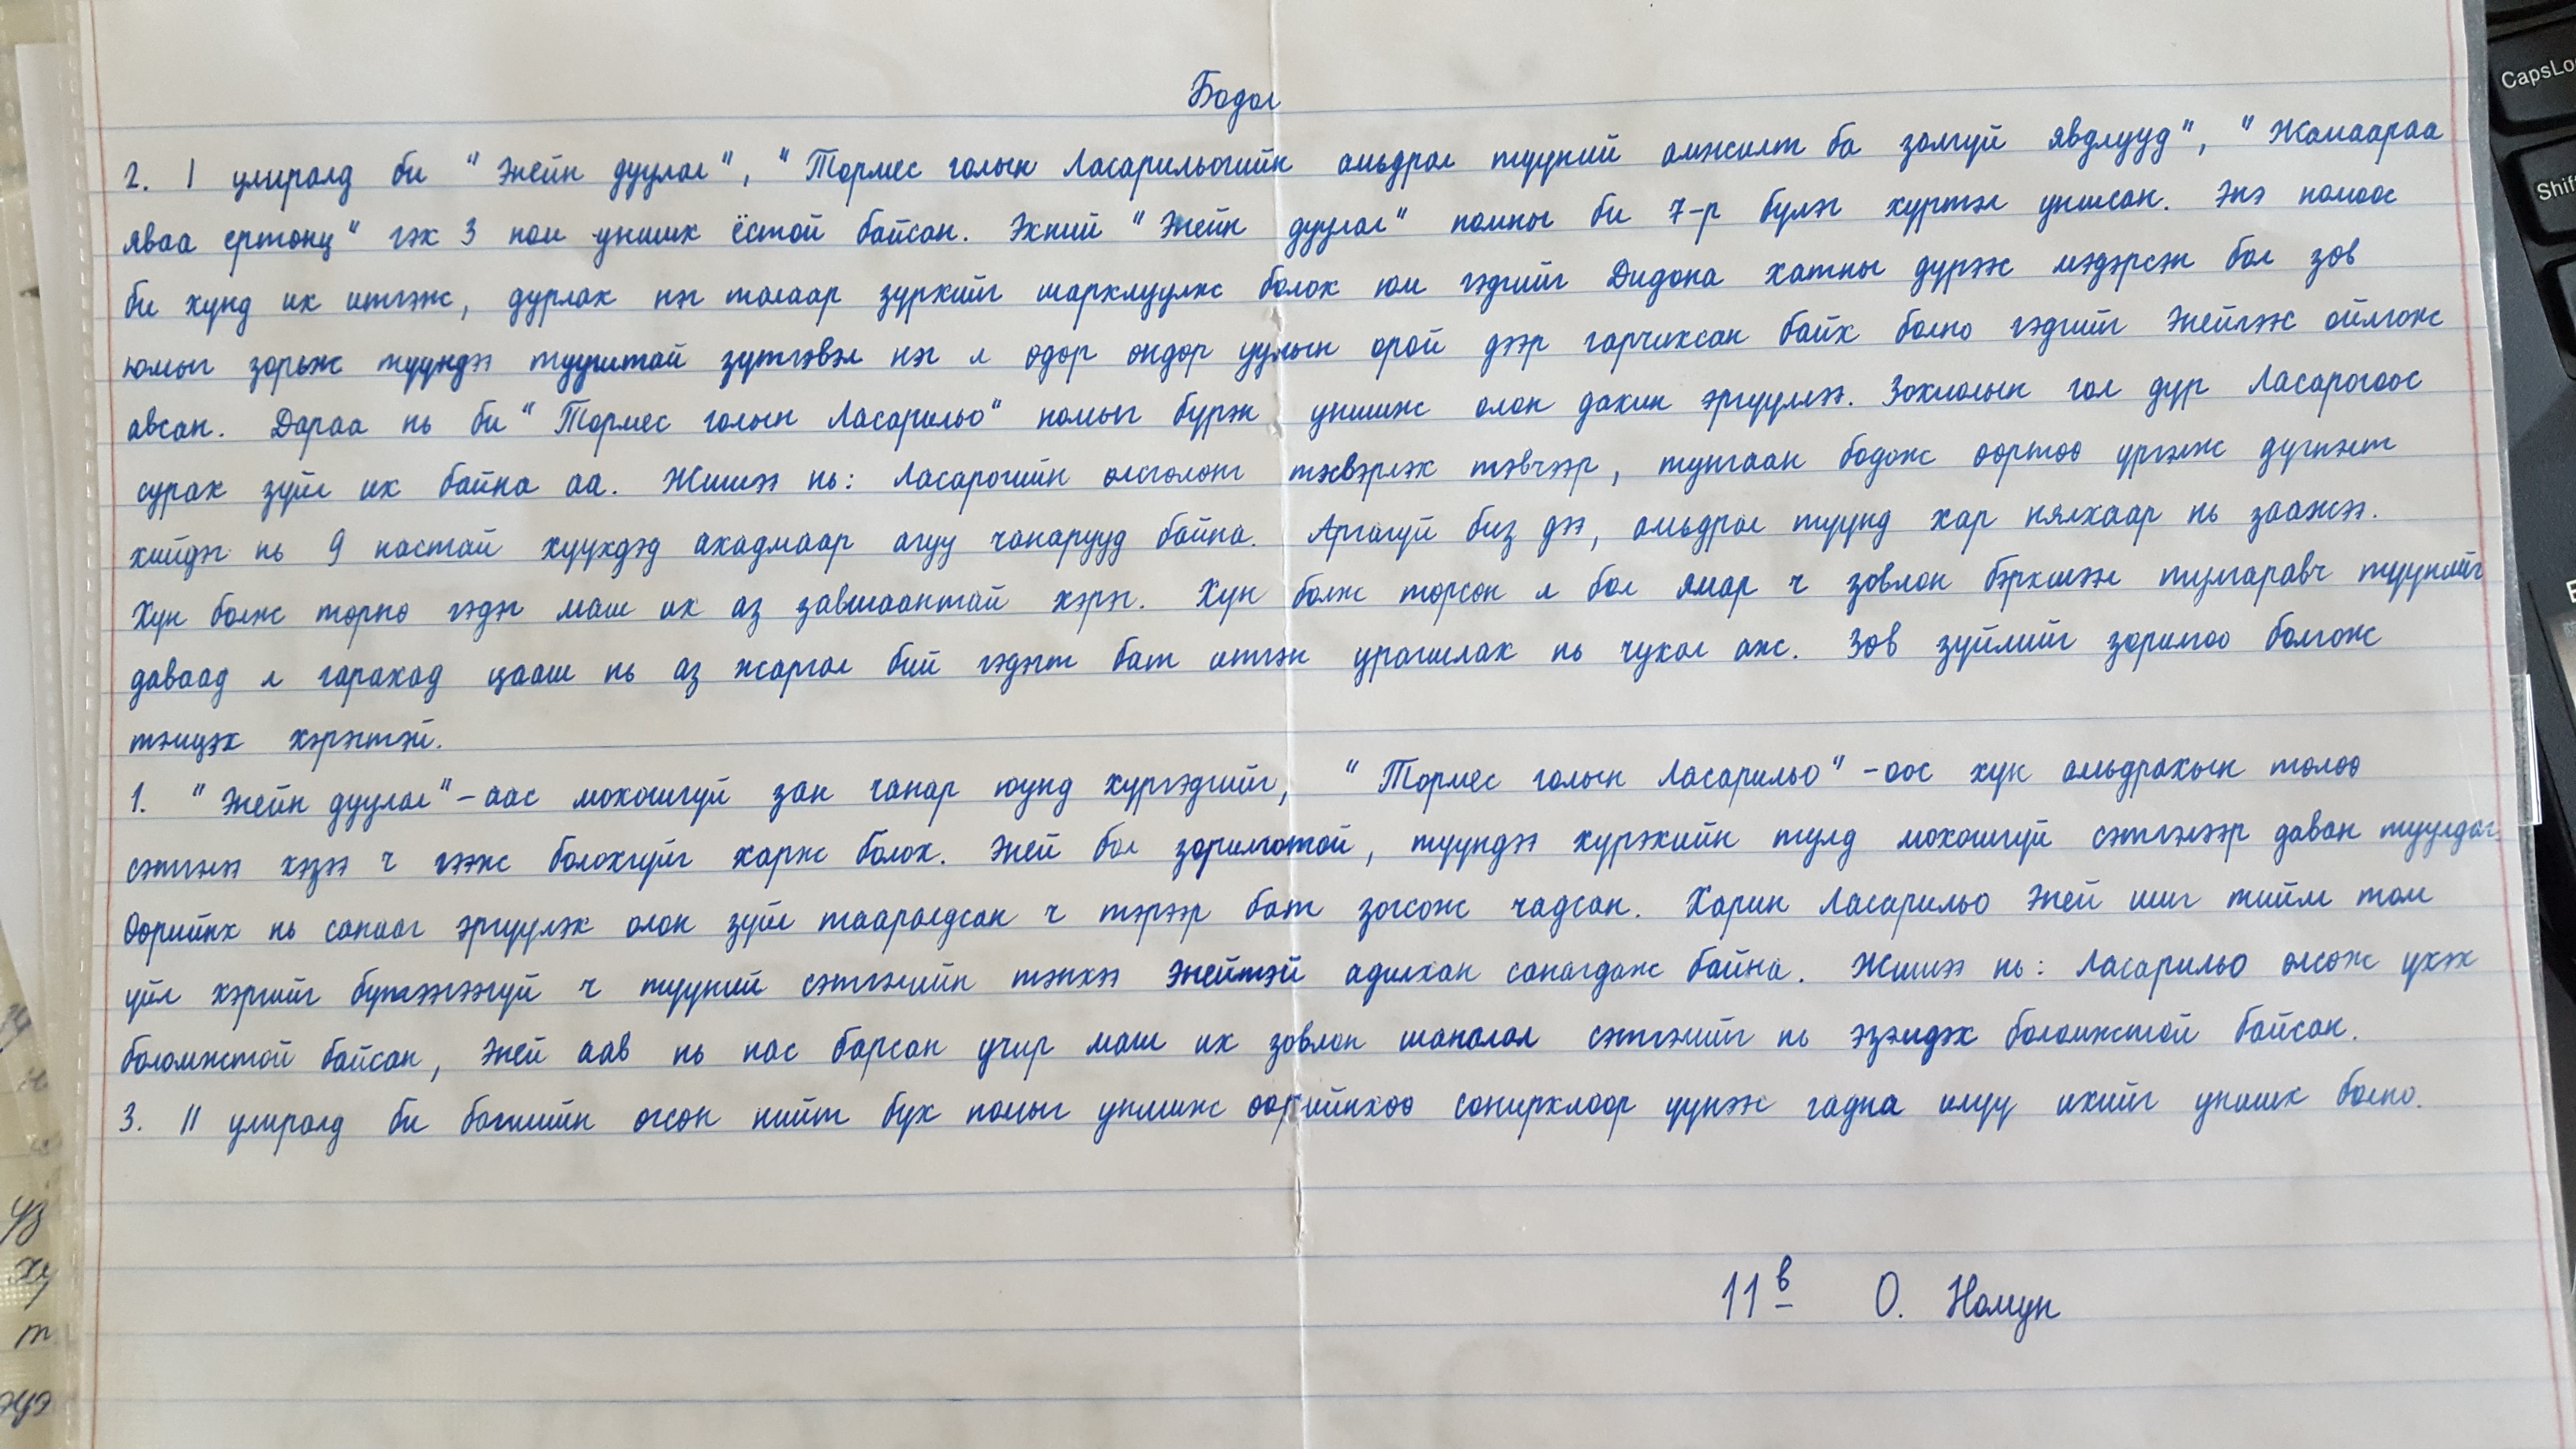 Бодол
2. I улиралд би "Энейн дуулал", "Тормес голын Ласарильогийн амьдрал түүний амжилт ба золгүй явдлууд", "Жамаараа
яваа ертөнц" гэх 3 ном унших ёстой байсан. Эхний "Энейн дуулал" номны би 7-р бүлэг хүртэл уншсан. Энэ номоос
би хүнд их итгэж, дурлах нэг талаар зүрхийг шархлуулж болох юм гэдгийг Дидона хатны дүрээс мэдэрсэн бол зөв
юмыг зорьж түүндээ тууштай зүтгэвэл нэг л өдөр өндөр уулын орой дээр гарчихсан байх болно гэдгийг Энейгээс ойлгож
авсан. Дараа нь би "Тормес голын Ласарильо" номыг бүрэн уншиж олон дахин эргүүллээ. Зохиолын гол дүр Ласарогоос
сурах зүйл их байна аа. Жишээ нь: Ласарогийн өлсгөлөнг тэсвэрлэх тэвчээр, тунгаан бодож өөртөө үргэлж дүгнэлт
хийдэг нь 9 настай хүүхдэд ахадмаар агуу чанарууд байна. Аргагүй биз дээ, амьдрал түүнд хар нялхаар нь заажээ.
Хүн болж төрнө гэдэг маш их аз завшаантай хэрэг. Хүн болж төрсөн л бол ямар ч зовлон бэрхшээл тулгаравч түүнийг
даваад л гарахад цааш нь аз жаргал бий гэдэгт бат итгэн урагшлах нь чухал аж. Зөв зүйлийг зорилгоо болгож
тэмцэх хэрэгтэй.
1. "Энейн дуулал"-аас мохошгүй зан чанар юунд хүргэдгийг, "Тормес голын Ласарильо"-оос хүн амьдрахын төлөө
сэтгэлээ хэзээ ч гээж болохгүйг харж болох. Эней бол зорилготой, түүндээ хүрэхийн тулд мохошгүй сэтгэлээр даван туулдаг.
Өөрийнх нь санааг эргүүлэх олон зүйл тааралдсан ч тэрээр бат зогсож чадсан. Харин Ласарильо Эней шиг тийм том
үйл хэргийг бүтээгээгүй ч түүний сэтгэлийн тэнхээ Энейтэй адилхан санагдаж байна. Жишээ нь: Ласарильо өлсөж үхэх
боломжтой байсан, Эней аав нь нас барсан учир маш их зовлон шаналал сэтгэлийг нь эзэмдэх боломжтой байсан.
3. II улиралд би багшийн өгсөн нийт бүх номыг уншиж өөрийнхөө сонирхлоор үүнээс гадна илүү ихийг унших болно.
11в О. Номун